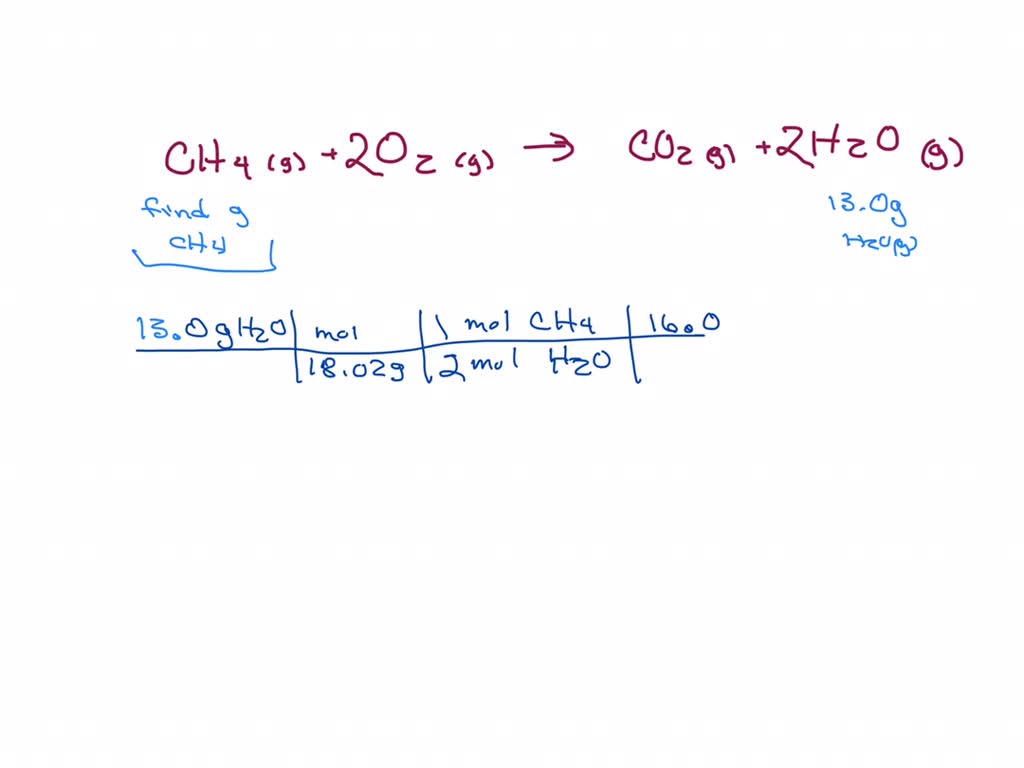 CH4 (g) + 2O2 (g) → CO2 (g) + 2H2O (g)
find g
CH4
13.0g
H2O(g)
13.0gH2O | mol | 1 mol CH4 | 16.0
18.02g | 2 mol H2O